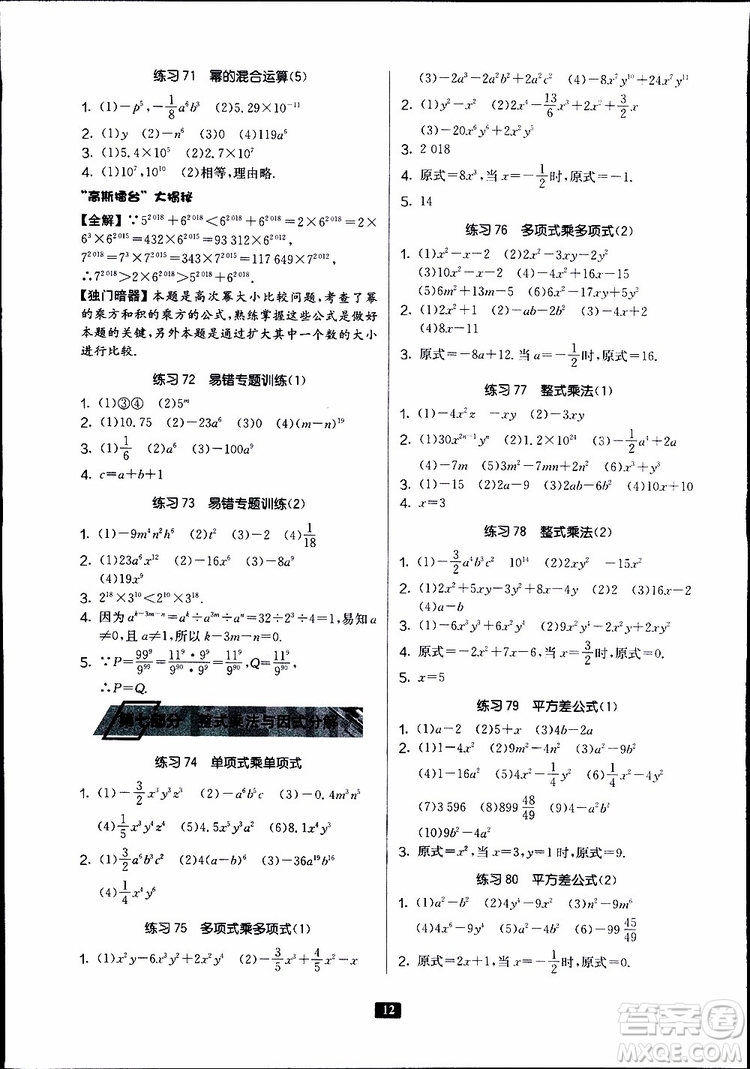 练习71 幂的混合运算(5)
1. (1)-p⁵,-1/8a⁶b³ (2)5.29×10⁻¹¹
2. (1)y (2)-n⁶ (3)0 (4)119a⁶
3. (1)5.4×10⁵ (2)2.7×10⁶
4. (1)10⁷,10¹⁰ (2)相等,理由略.
"高斯擂台"大揭秘
【全解】∵5²⁰¹⁸+6²⁰¹⁸<6²⁰¹⁸+6²⁰¹⁸=2×6²⁰¹⁸=2×
6³×6²⁰¹⁵=432×6²⁰¹⁵=93 312×6²⁰¹²,
7²⁰¹⁸=7³×7²⁰¹⁵=343×7²⁰¹⁵=117 649×7²⁰¹²,
∴7²⁰¹⁸>2×6²⁰¹⁸>5²⁰¹⁸+6²⁰¹⁸.
【独门暗器】本题是高次幂大小比较问题,考查了幂
的乘方和积的乘方的公式,熟练掌握这些公式是做
本题的关键,另外本题通过扩大其中一个数的大小
进行比较.
练习72 易错专题训练(1)
1. (1)③④ (2)5ᵐ
2. (1)10.75 (2)-23a⁶ (3)0 (4)(m-n)¹⁹
3. (1)1/6 (2)-a⁵ (3)-100a⁹
4. c=a+b+1
练习73 易错专题训练(2)
1. (1)-9m⁴n²h⁶ (2)t² (3)-8a⁹ (4)1/18
2. (1)23a⁶x¹² (2)-3a³ (3)-8a⁹
(4)19x⁹
3. 2¹⁸×3¹⁰<2¹⁰×3¹⁵.
4. 因为aᵏ⁻³ᵐ⁻ⁿ=aᵏ÷a³ᵐ÷aⁿ=32÷2³÷4=1,易知a
≠0,且a≠1,所以k-3m-n=0.
5. ∵P=99⁹/9⁹⁹=11⁹·9⁹/9⁹⁹=11⁹·9⁹/9⁹·9⁹⁰=11⁹/9⁹⁰,
∴P=Q.
第七部分 整式乘法与因式分解
练习74 单项式乘单项式
1. (1)-3/2x³y³z³ (2)-a⁶b²c (3)-0.4m³n⁵
(4)1/5x³y⁵ (5)4.5x³y⁹ (6)8.1x⁴y³
2. (1)3/2a⁶b³c² (2)4(a-b)⁵ (3)-36a¹⁹b¹⁶
(4)1/4x⁴y⁶
练习75 多项式乘多项式(1)
1. (1)x²y-6x³y²+2x²y⁴ (2)-3/5x³+3/5x²-x
(3)-2a³-a²b²+2a² (4)-8x⁷y¹⁰+24x⁷y⁸
2. (1)y²-x² (2)2x⁴-13/6x³+2x²+3/2x
(3)-20x⁶y⁶+8x³y⁵
3. 2 018
4. 原式=8x³,当x=-1/2时,原式=-1.
5. 14
练习76 多项式乘多项式(2)
1. (1)x²-x-2 (2)2x²-3xy-2y²
(3)10x²-x-2 (4)x²-4xy+4y²
(5)6m²+13m-5 (6)2x³-7x²-x+2
2. (1)2x²+1 (2)-ab-5b² (3)-5a²+3a
(4)8x-11
3. 原式=-8a+12.当a=-1/2时,原式=16.
练习77 整式乘法(1)
1. (1)-4x²z -xy (2)-3xy
2. (1)30x²ⁿ⁻¹yⁿ (2)1.2×10²⁴ (3)-1/2a²+2a
(4)-7m (5)-7m (6)x³+y³
3. (1)-15 (2)2a-9 (3)2ab²-b³ (4)10x+10
4. x=3
练习78 整式乘法(2)
1. (1)-3/2a⁴b³c² 10¹⁴ (2)20x²y -15x²
2. (1)2x²+5x-12 (2)x³-y³ (3)-10x²+13x
(4)a-b
3. (1)-6x³y³+6x³y⁴ (2)9x²y²-4x²y⁴
4. 原式=6x+5,当x=1/6时,原式=6.
5. x=5
练习79 平方差公式(1)
1. (1)a-4b (2)5+x² (3)4b-a
2. (1)1-4x² (2)9m²-n² (3)9y²-4x²
(4)1-16a² (5)1/4x²-9y² (6)1/4a⁴-b²
(7)3 596 (8)899 48/49 (9)-a²b²+c²
(10)9b²-4a²
3. 原式=x²,当x=1,y=1时,原式=1.
练习80 平方差公式(2)
1. (1)a²-b² (2)y⁴-9x² (3)m⁴-n⁴
(4)4x⁶-9y⁴ (5)-3x²-y² (6)-99 45/49
2. 原式=2x+1,当x=-1/2时,原式=0.
12
答案圈